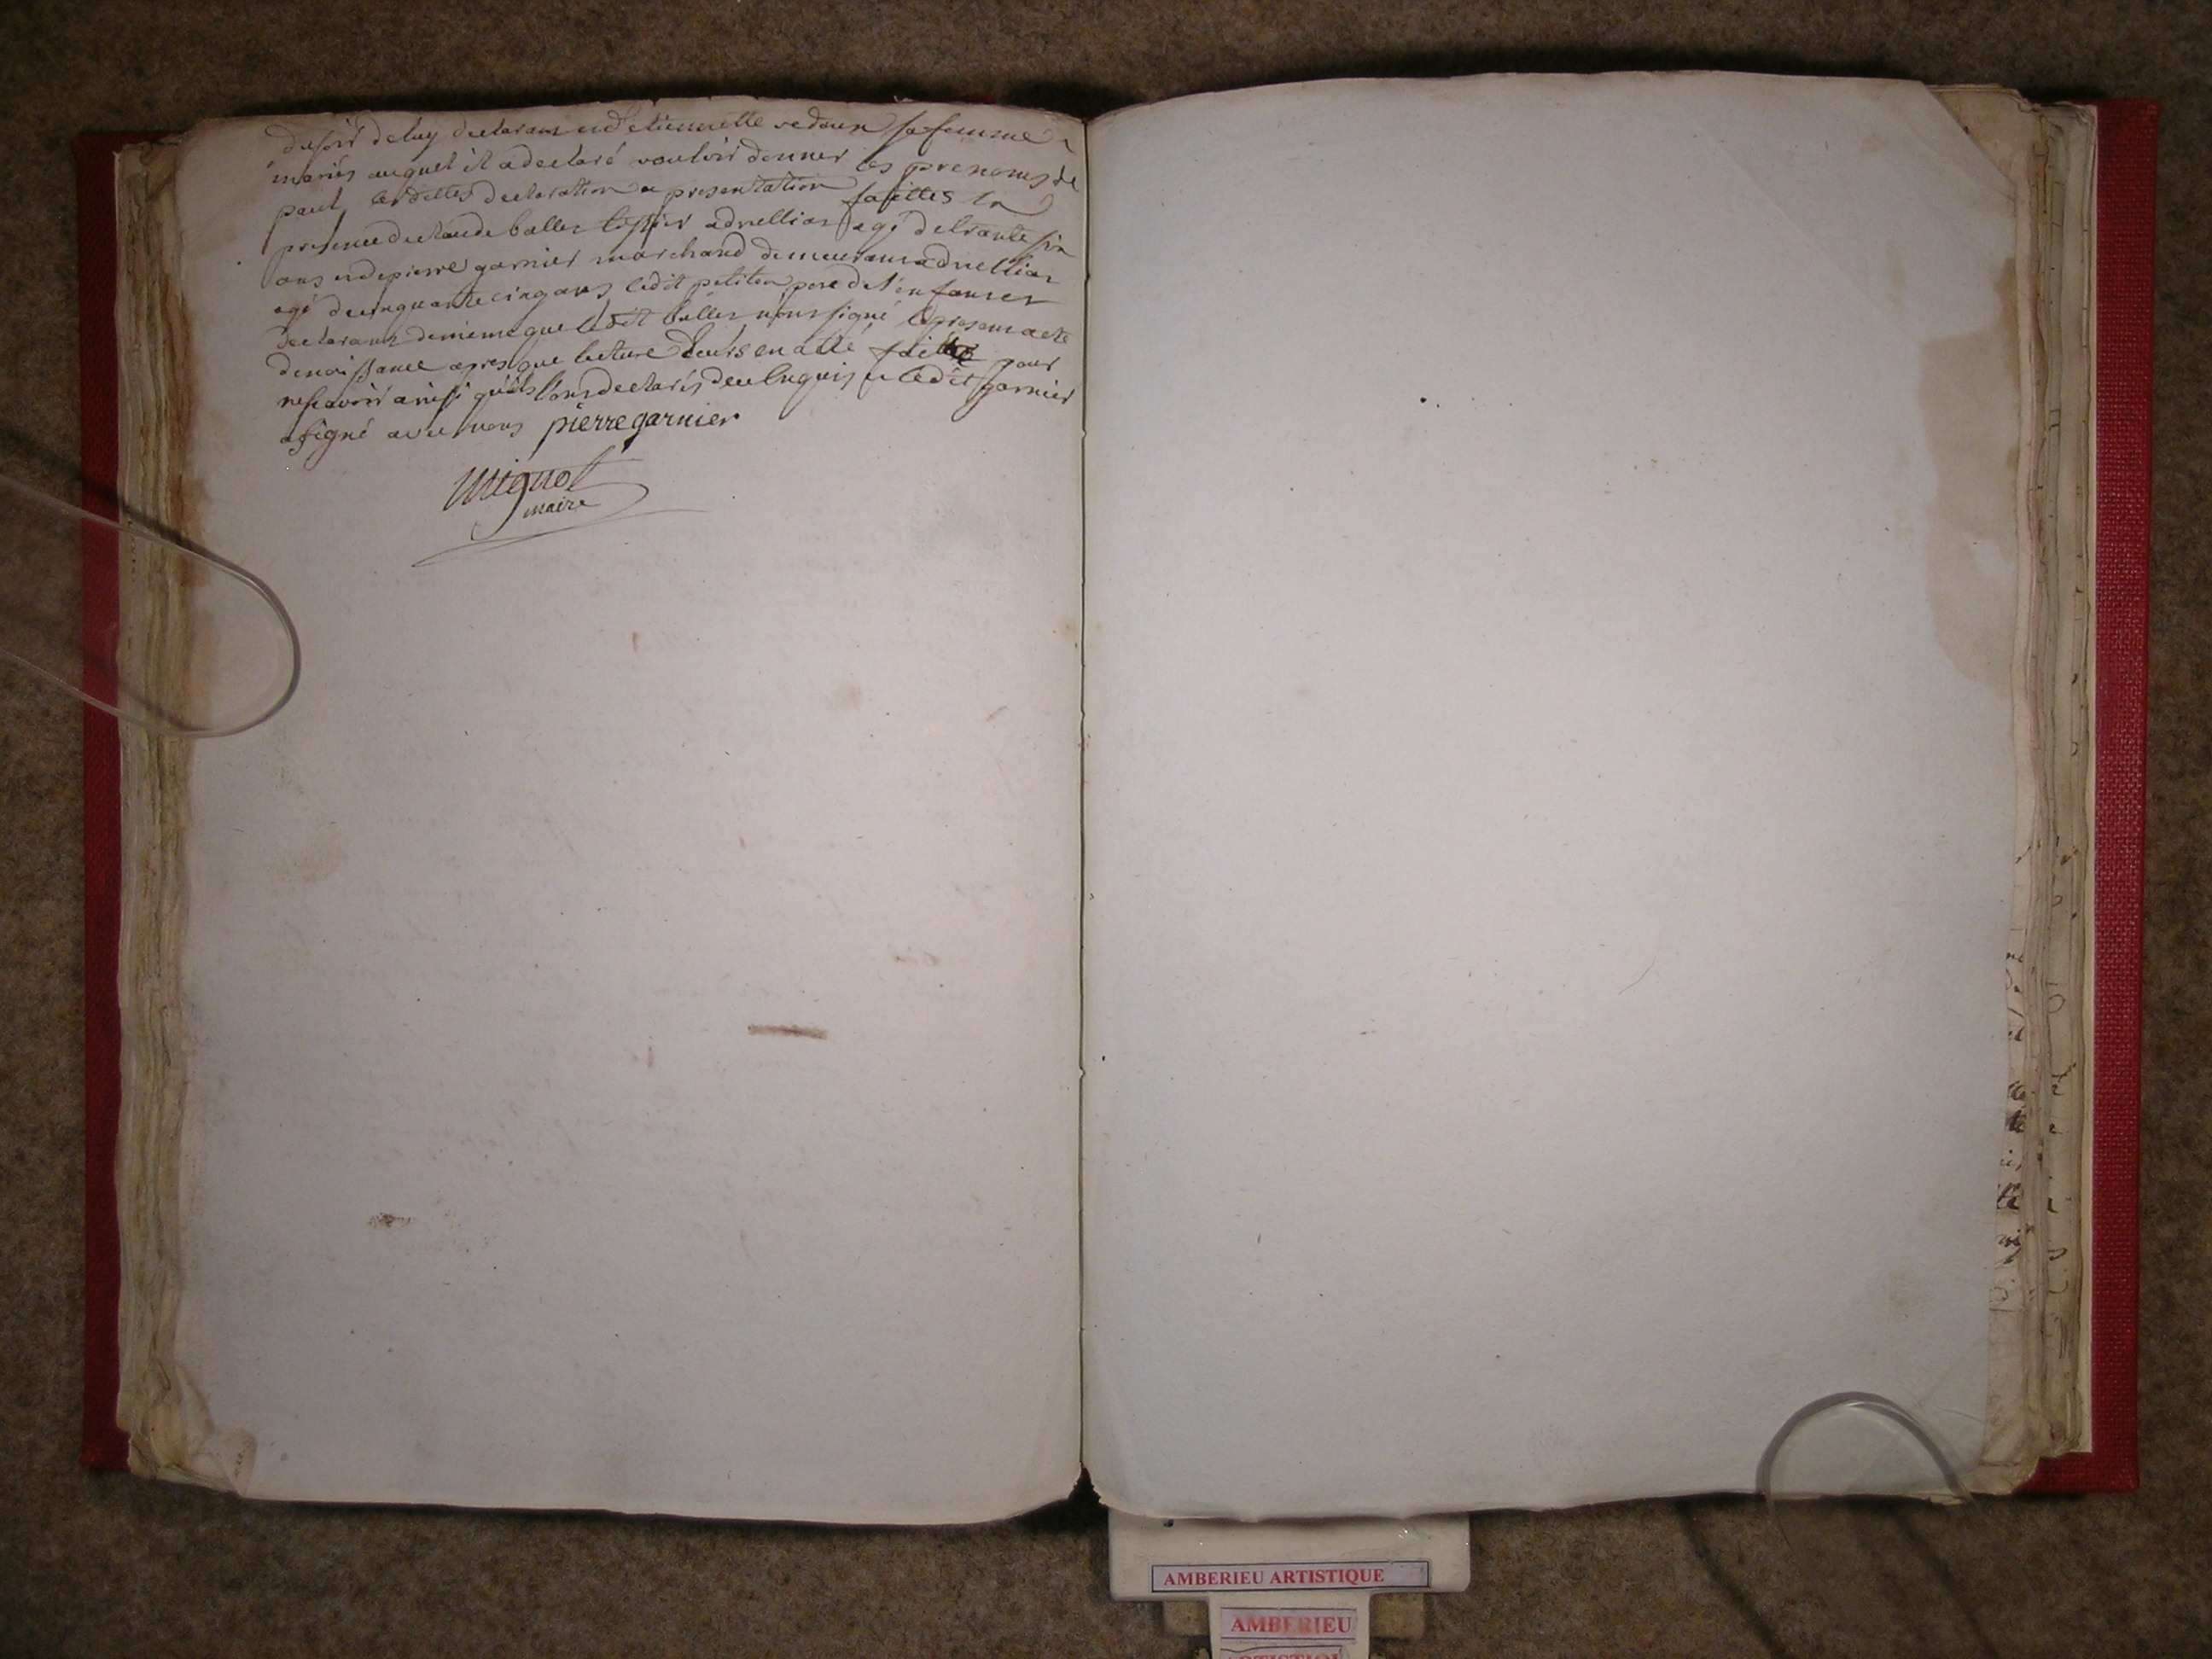 du soir de luy declarant et d'etiennette vedoux sa femme
mariés auquel il a declaré vouloir donner les prenoms de
paul, lesdittes declaration et presentation faittes en
presence de claude ballet tessier a druilliat agé de trante six
ans et de pierre garnier marchand demeurant a druilliat
agé de cinquante cinq ans ledit petitem pere de l'enfant et
declarant de meme que ledit ballet n'ont signé le present acte
de naissance apres que lecture leurs en a été faitte pour
ne scavoir ainsi qu'ils l'ont declarés de ce enquis et ledit garnier
a signé avec nous pierre garnier
Mignot
maire
AMBERIEU ARTISTIQUE
AMBERIEU